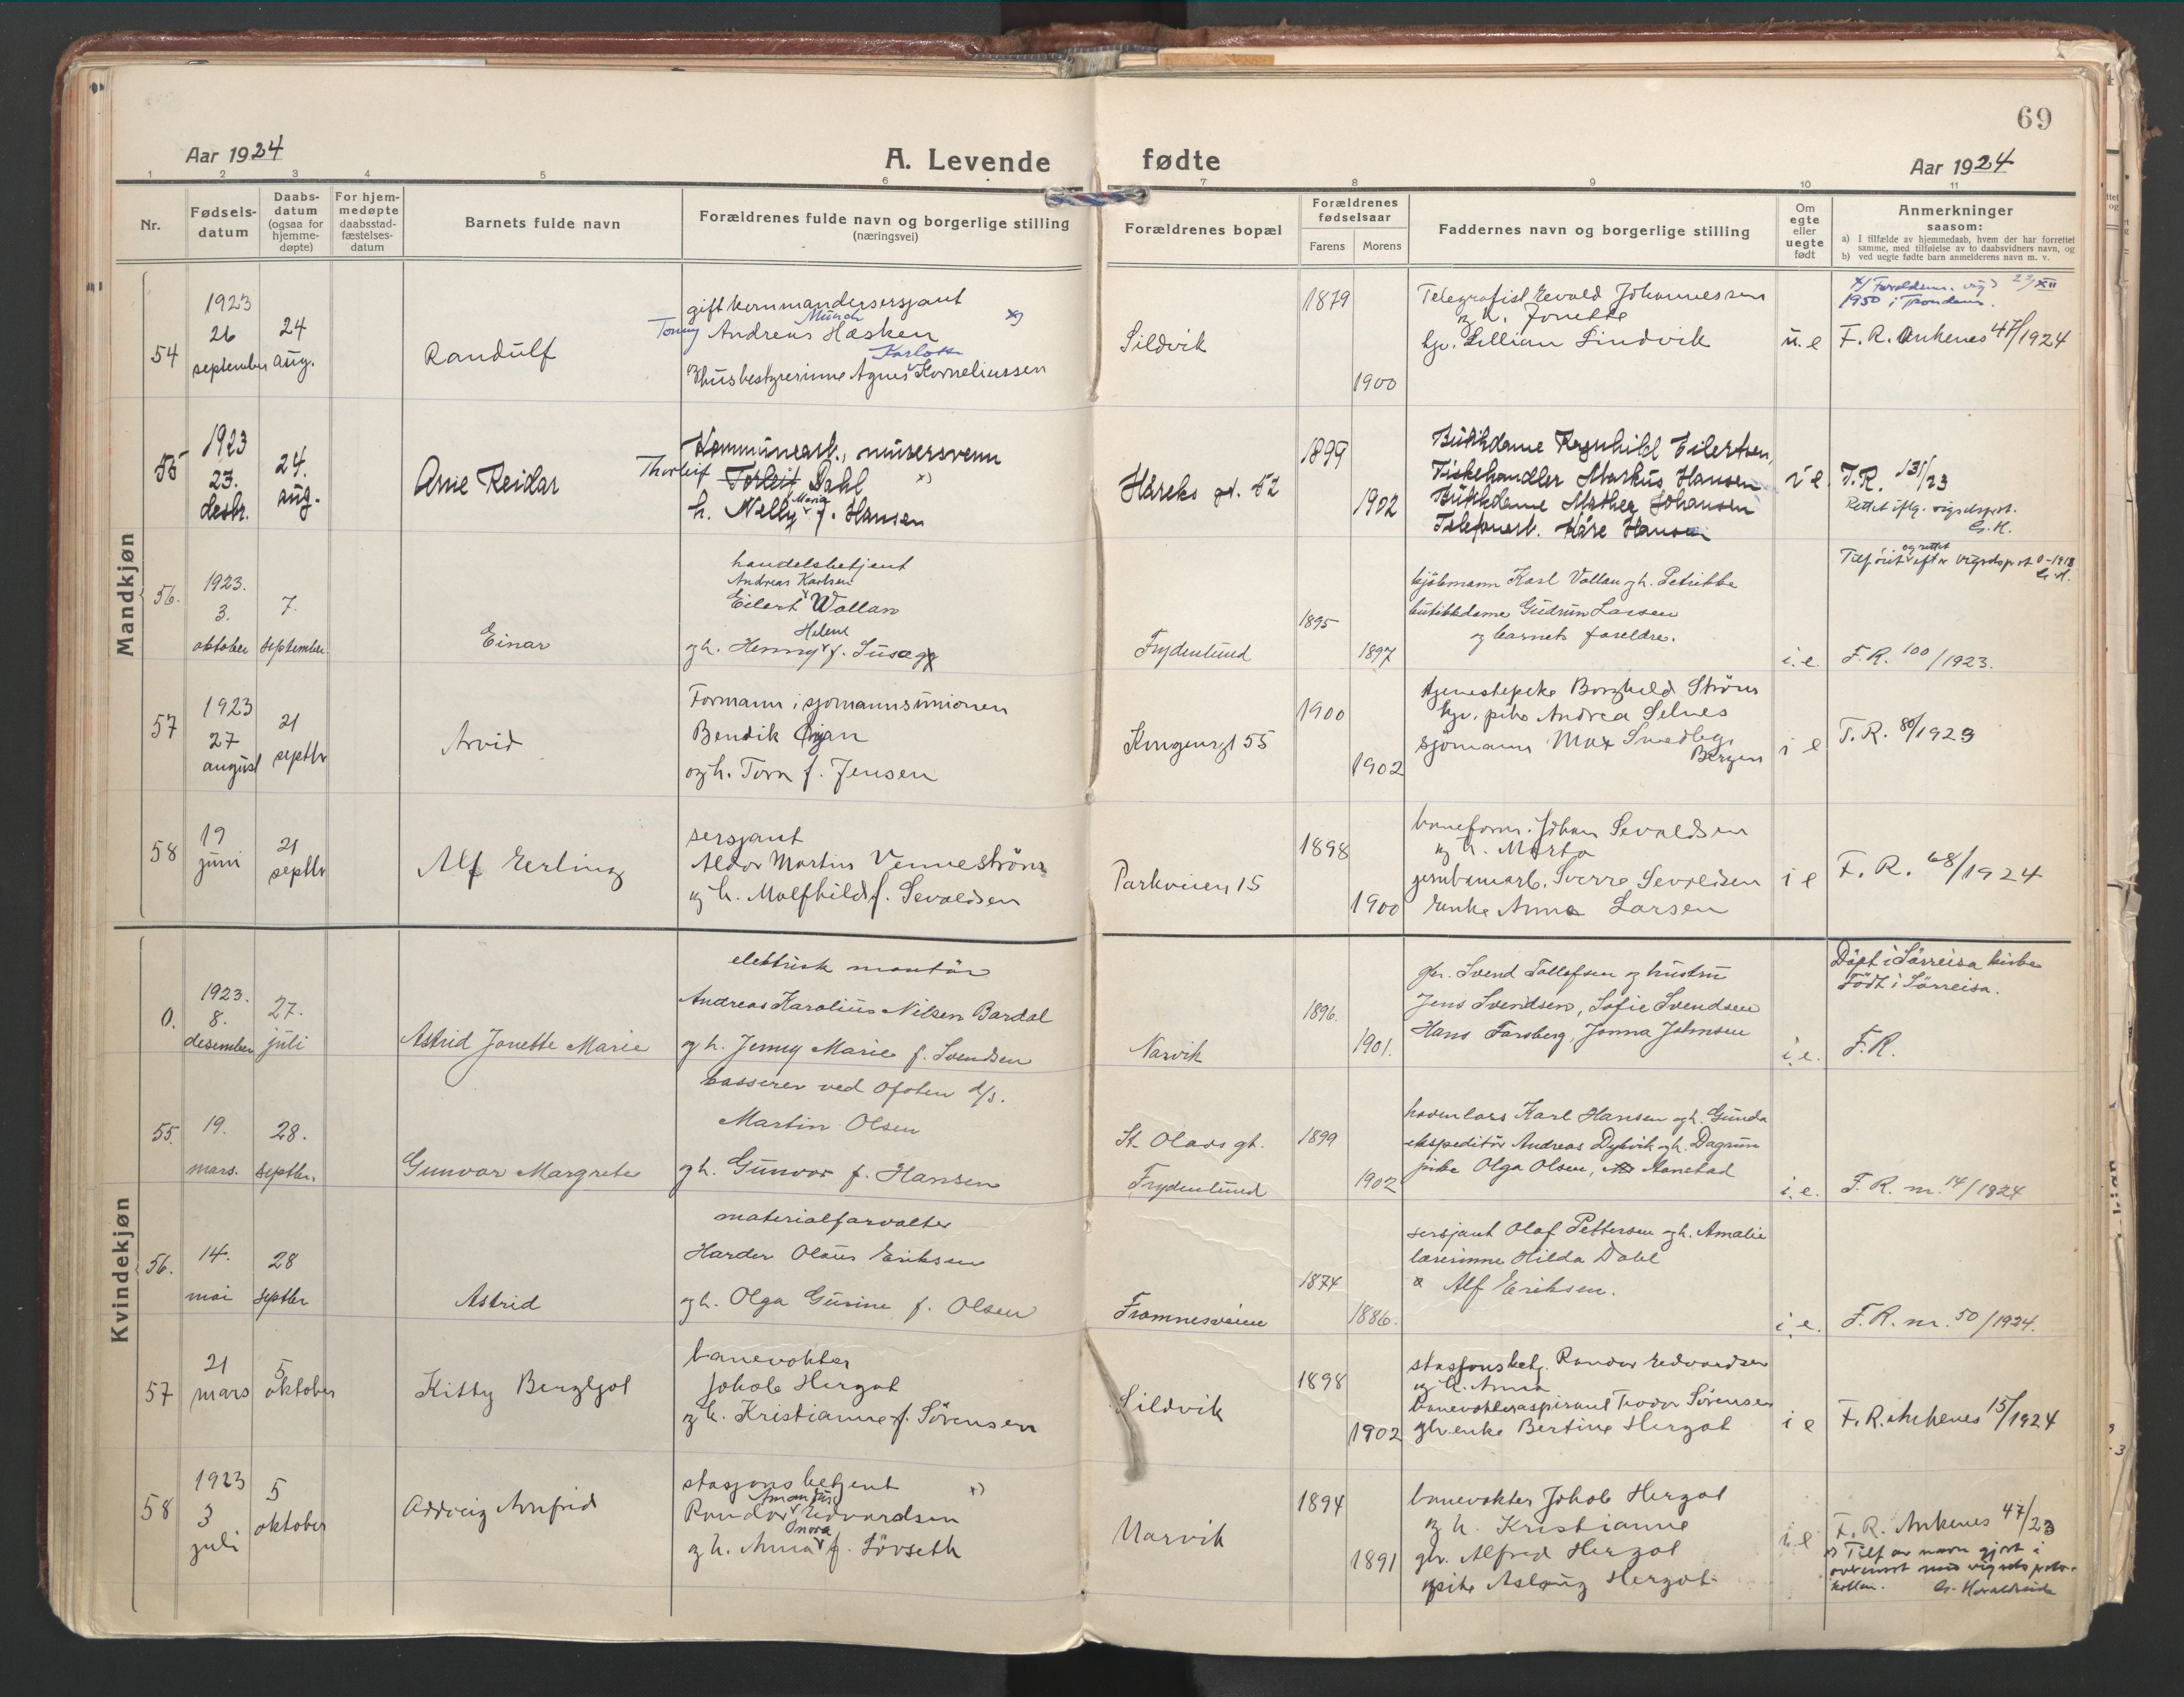 69
Aar 1924
A. Levende fødte
Aar 1924
1 2 3 4 5 6 7 8 9 10 11
Nr.
Fødsels-
datum
Daabs-
datum
(ogsaa for
hjemme-
døpte)
For hjem-
medøpte
daabsstad-
fæstelses-
datum
Barnets fulde navn
Forældrenes fulde navn og borgerlige stilling
(næringsvei)
Forældrenes bopæl
Forældrenes
fødselsaar
Farens Morens
Faddernes navn og borgerlige stilling
Om
egte
eller
uegte
født
Anmerkninger
saasom:
a) I tilfælde av hjemmedaab, hvem der har forrettet
samme, med tilføielse av to daabsvidners navn, og
b) ved uegte fødte barn anmelderens navn m. v.
Mandkjøn
54
1923
26
september
24
aug.
Randulf
gift kommandersersjant
Münch
Tonny Andreas Hasken x)
Karlotte
Husbestyrerinne Agnes Korneliussen
Sildvik
1879
1900
Telegrafist Evald Johannessen
og h. Jonette
hp. Lillian Lindvik
u. e
1950 i Trondenes.
F. R. Ankenes 47/1924
55
1923
23.
desbr.
24.
aug.
Arne Reidar
Kommunearb., murersvenn
Thorleif Torleif Dahl x)
Maria
h. Nelly f. Hansen
Håreks gt. 52
1899
1902
Butikkdame Ragnhild Eilertsen,
Fiskehandler Markus Hansen
Butikkdame Mathea Johansen
Telefonarb. Kåre Hansen
i e
F.R. 131/23
Rettet iflg. vigselsprot.
G. H.
56.
1923.
3.
oktober
7.
september.
Einar
handelsbetjent
Andreas Karlsen
Eilert Vollan
Helene
og h. Henny f. Susegg
Frydenlund
1895
1897
kjöbmann Karl Vollan og h. Petrikke
butikkdame Gudrun Larsen
og barnets foreldre.
i. e.
og rettet
Tilföiet efter vigselsprot 0-1918
G. H.
F. R. 100/1923.
57
1923
27
august
21
septbr
Arvid
Formann i sjomannsunionen
Bendik Öijan
og h. Tora f. Jensen
Kongensgt 55
1900
1902
tjenestepike Borghild Ström
hp. pike Andrea Selnes
sjömann Max Smedbg.
Bergen
i e
F. R. 80/1923
58
19
juni
21
septbr
Alf Erling
sersjant
Aldor Martin Venneström
og h. Malfhild f. Sevaldsen
Parkveien 15
1898
1900
baneform. Johan Sevaldsen
og h. Marta
jernbanearb. Sverre Sevaldsen
enke Anna Larsen
i e
F. R. 68/1924
Kvindekjøn
0.
1923.
8.
desember
27.
juli
Astrid Jonette Marie
elektrisk montör
Andreas Karolius Nilsen Bardal
og h. Jenny Marie f. Svendsen
Narvik
1896.
1901.
gbr. Svend Tollefsen og hustru
Jens Svendsen, Sofie Svendsen
Hans Forsberg, Jonna Johnsen
i. e.
Döpt i Sörreisa kirke
Födt i Sörreisa.
F. R.
55.
19.
mars.
28.
septbr.
Gunvor Margrete
kasserer ved Ofoten d/s.
Martin Olsen
og h. Gunvor f. Hansen
St. Olavs gt.
Frydenlund
1899
1902
havnelos Karl Hansen og h. Gunda
ekspeditör Andreas Dybvik og h. Dagrun
pike Olga Olsen, Aanstad
i. e.
F. R. nr. 14/1924
56.
14.
mai
28
septbr
Astrid
materialforvalter
Harder Olaus Eriksen
og h. Olga Gurine f. Olsen
Framnesveien
1874
1886.
sersjant Olaf Pettersen og h. Amalie
lærerinne Hilda Dahl
Alf Eriksen.
i. e.
F. R. nr. 50/1924.
57
21
mars
5
oktober
Kitty Bergljot
banevokter
Jakob Hergot
og h. Kristianne f. Sörensen
Sildvik
1898
1902
stasjonsbetj. Randor Edvardsen
og h. Anna
banevokteraspirant Teodor Sörensen
gbr.enke Bertine Hergot
i e
F. R. Ankenes 15/1924
58
1923
3
juli
5
oktober
Oddveig Arnfrid
stasjonsbetjent x)
Randor Edvardsen
Onora
og h. Anna f. Lövseth
Narvik
1894
1891
banevokter Jakob Hergot
og h. Kristianne
gbr. Alfred Hergot
pike Aslaug Hergot
i e
F. R. Ankenes 47/23
x) Tilf av navn gjort i
overenst med vigselsproto-
kollen. G. Haraldseide